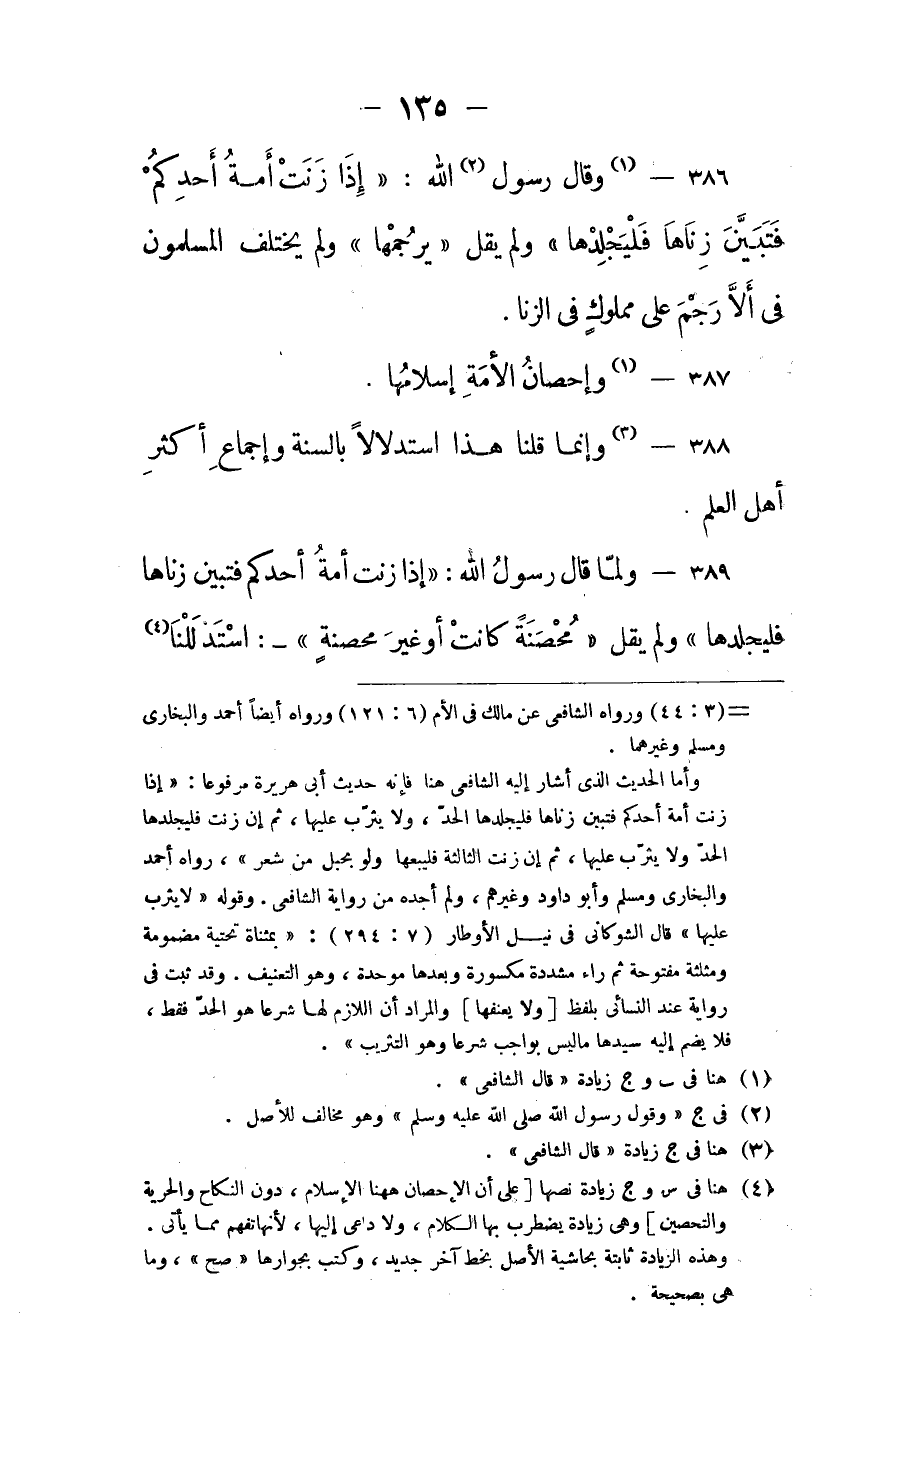 — ١٣٥ —
٣٨٦ — (١) وقال رسول (٢) الله : « إِذَا زَنَتْ أَمـةُ أَحدِكُمْ
فَتَبَيَّنَ زِنَاهَا فَلْيَجْلِدْها » ولم يقل « يرجُمْها » ولم يختلف المسلمون
فى أَلاَّ رَجْمَ على مملوكٍ فى الزنا .
٣٨٧ — (١) وإحصانُ الأمَةِ إسلامُها .
٣٨٨ — (٣) وإنمـا قلنا هـذا استدلالاً بالسنة وإجماعِ أكثرِ
أهل العلم .
٣٨٩ — ولمّـا قال رسولُ الله : « إذا زنت أمةُ أحدكم فتبين زناها
فليجلدها » ولم يقل « مُحْصَنَةً كانتْ أو غيرَ محصنةٍ » ــ : اسْتَدْلَلْنَا(٤)
= (٣ : ٤٤) ورواه الشافعى عن مالك فى الأم (٦ : ١٢١) ورواه أيضاً أحمد والبخارى
ومسلم وغيرهما .
وأما الحديث الذى أشار إليه الشافعى هنا فإنه حديث أبى هريرة مرفوعا : « إذا
زنت أمة أحدكم فتبين زناها فليجلدها الحدّ ، ولا يثرّب عليها ، ثم إن زنت فليجلدها
الحدّ ولا يثرّب عليها ، ثم إن زنت الثالثة فليبعها ولو بحبل من شعر » ، رواه أحمد
والبخارى ومسلم وأبو داود وغيرهم ، ولم أجده من رواية الشافعى . وقوله « لايثرب
عليها » قال الشوكانى فى نيـل الأوطار (٧ : ٢٩٤) : « بمثناة تحتية مضمومة
ومثلثة مفتوحة ثم راء مشددة مكسورة وبعدها موحدة ، وهو التعنيف . وقد ثبت فى
رواية عند النسائى بلفظ [ ولا يعنفها ] والمراد أن اللازم لهـا شرعا هو الحدّ فقط ،
فلا يضم إليه سيدها ماليس بواجب شرعا وهو التثريب » .
(١) هنا فى ب و ج زيادة « قال الشافعى » .
(٢) فى ج « وقول رسول الله صلى الله عليه وسلم » وهو مخالف للأصل .
(٣) هنا فى ج زيادة « قال الشافعى » .
(٤) هنا فى س و ج زيادة نصها [ على أن الإحصان ههنا الإسلام ، دون النكاح والحرية
والتحصين ] وهى زيادة يضطرب بها الـكلام ، ولا داعى إليها ، لأنهاتفهم ممـا يأتى .
وهذه الزيادة ثابتة بحاشية الأصل بخط آخر جديد ، وكتب بجوارها « صح » ، وما
هى بصحيحة .